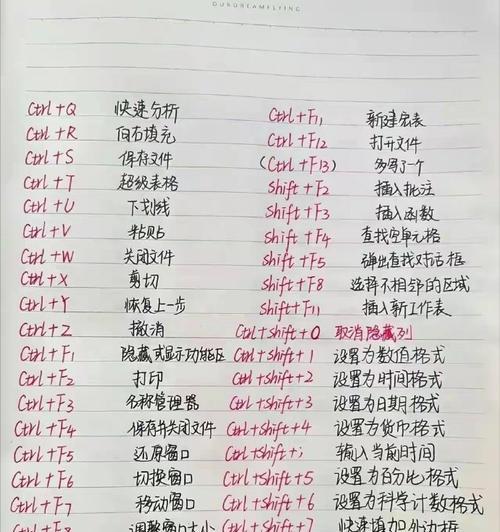 OUROREAMFLYING
Ctrl+Q 快速分析 Ctrl+F11 新建宏表
Ctrl+R 向右填充 Ctrl+F12 打开文件
Ctrl+S 保存文件 (Ctrl+F13) 多写了一个
Ctrl+T 超级表格 Shift+F2 插入批注
Ctrl+U 下划线 Shift+F3 插入函数
Ctrl+V 粘贴 Shift+F4 查找空单元格
Ctrl+W 关闭文件 Shift+F5 弹出查找对话框
Ctrl+X 剪切 Shift+F8 选择不相邻的区域
Ctrl+Y 恢复上一步 Shift+F11 插入新工作表
Ctrl+Z 撤消 Ctrl+shift+0 取消隐藏列
Ctrl+F1 隐藏或显示功能区 Ctrl+shift+1 设置为数值格式
Ctrl+F2 打印 Ctrl+shift+2 设置为时间格式
Ctrl+F3 名称管理器 Ctrl+shift+3 设置为日期格式
Ctrl+F4 保存并关闭文件 Ctrl+shift+4 设置为货币格式
Ctrl+F5 还原窗口 Ctrl+shift+; 输入当前时间
Ctrl+F6 切换窗口 Ctrl+shift+5 设置为百分比格式
Ctrl+F7 移动窗口 Ctrl+shift+6 设置为科学计数格式
Ctrl+F8 调整窗口大小 Ctrl+shift+7 快速增加外边框